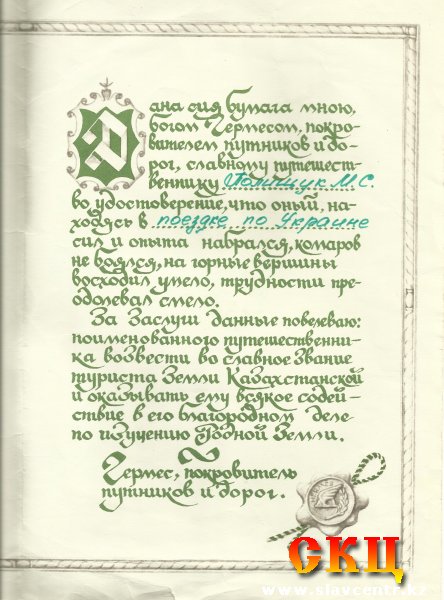 Дана сия бумага мною,
богом Гермесом, покро-
вителем путников и до-
рог, славному путешест-
веннику Полищук М.С.
во удостоверение, что оный, на-
ходясь в поездке по Украине
сил и опыта набрался, комаров
не боялся, на горные вершины
восходил умело, трудности пре-
одолевал смело.
За Заслуги данные повелеваю:
поименованного путешественни-
ка возвести во славное Звание
туриста Земли Казахстанской
и оказывать ему всякое содей-
ствие в его благородном деле-
по изучению Родной Земли.
Гермес, покровитель
путников и дорог.
СКЦ
www.slavcentr.kz